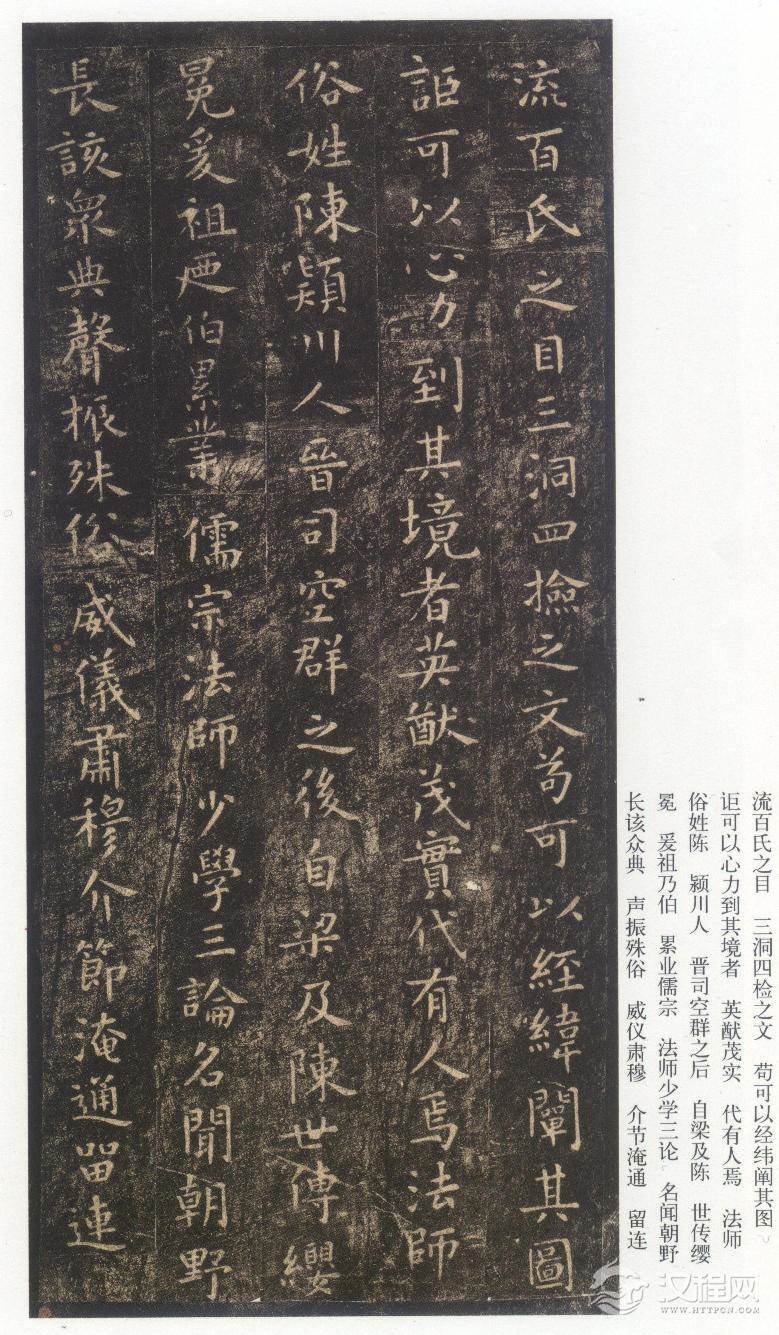 流百氏之目三洞四撿之文苟可以經緯闡其圖
詎可以心力到其境者英猷茂實代有人焉法師
俗姓陳潁川人晉司空群之後自梁及陳世傳纓
冕爰祖迺伯累業儒宗法師少學三論名聞朝野
長該衆典聲振殊俗威儀肅穆介節淹通留連
流百氏之目 三洞四检之文 苟可以经纬阐其图
讵可以心力到其境者 英猷茂实 代有人焉 法师
俗姓陈 颍川人 晋司空群之后 自梁及陈 世传缨
冕 爰祖乃伯 累业儒宗 法师少学三论 名闻朝野
长该众典 声振殊俗 威仪肃穆 介节淹通 留连
汉程网
WWW.HTTPCN.COM